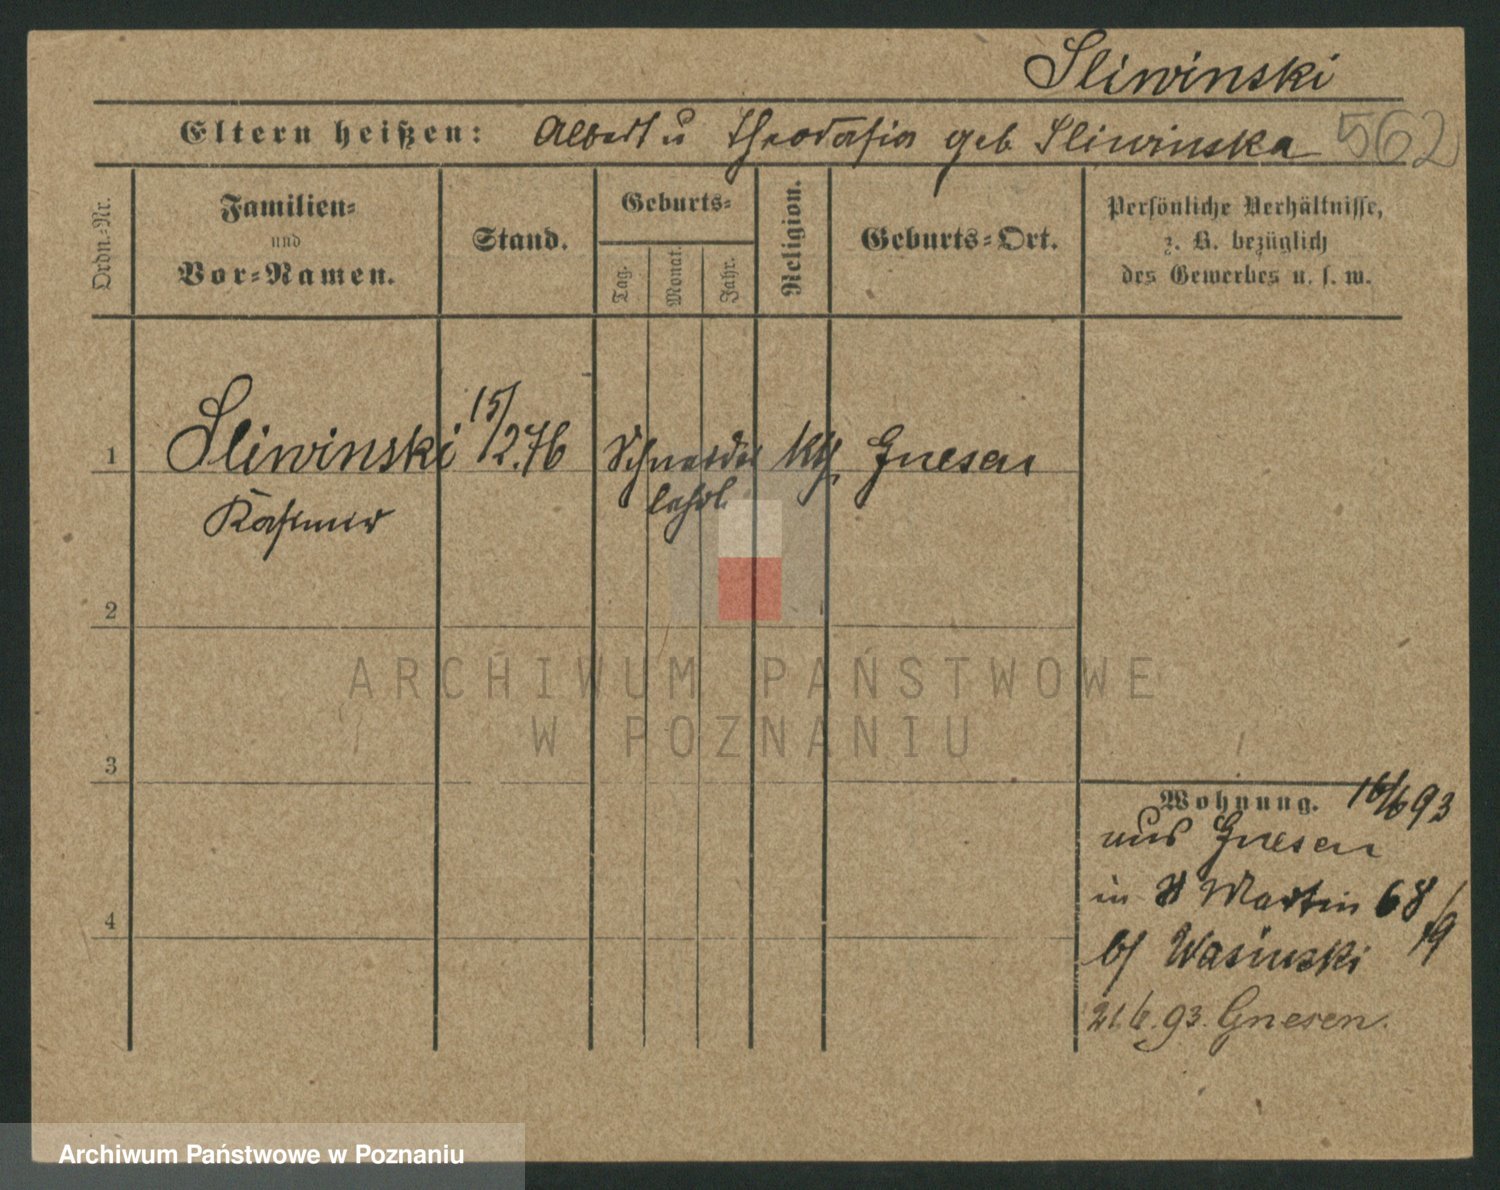 Sliwinski
Eltern heißen: Albert u Theodosia geb Sliwinska 562
Ordn.-Nr.
Familien-
und
Vor-Namen.
Stand.
Geburts-
Tag.
Monat.
Jahr.
Religion.
Geburts-Ort.
Persönliche Verhältnisse,
z. B. bezüglich
des Gewerbes u. s. w.
1 Sliwinski 15/2.76 Schneider Kth Gnesen
lehrl.
Kasimir
2
ARCHIWUM PAŃSTWOWE
W POZNANIU
3
Wohnung. 16/6 93
aus Gnesen
in St Martin 68/19
b/ Wasinski
21.6.93. Gnesen.
4
Archiwum Państwowe w Poznaniu